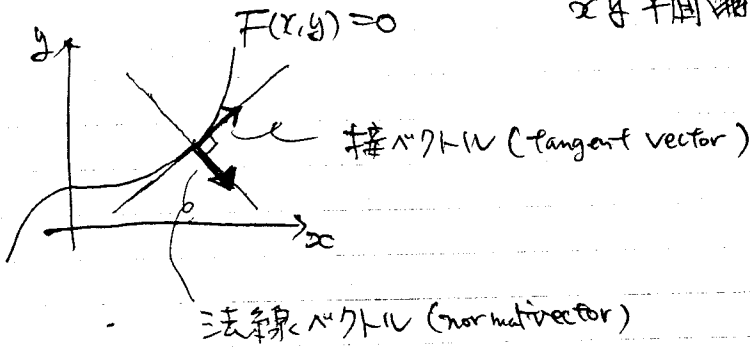 F(x,y)=0
xy平面
y
接ベクトル (tangent vector)
x
法線ベクトル (normal vector)